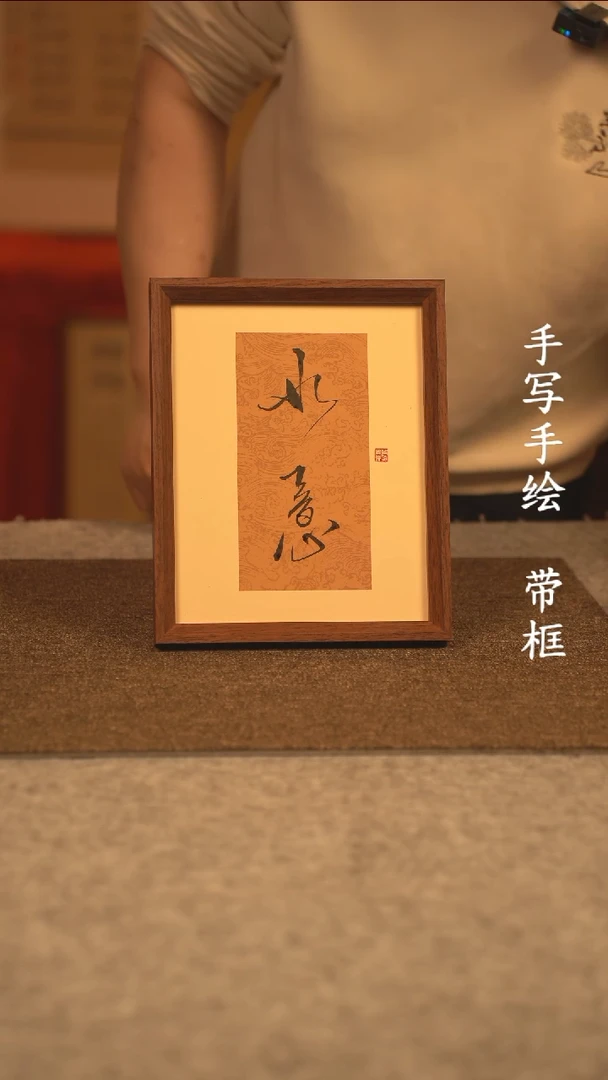 意
手写手绘 带框